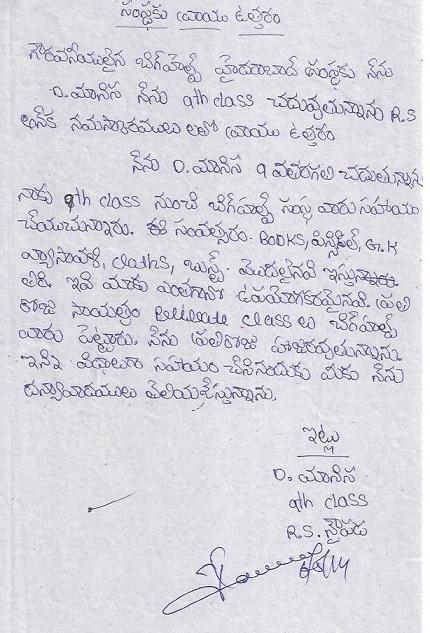 సంస్థకు వ్రాయు ఉత్తరం
గౌరవనీయులైన బిగ్‌హెల్ప్ హైదరాబాద్ సంస్థకు నేను
D.మానిస నేను 9th class చదువుతున్నాను R.S
అనేక నమస్కారములులతో వ్రాయు ఉత్తరం
నేను D.మానిస 9 వతరగతి చదుతున్నాను
నాకు 9th class నుంచి బిగ్‌హెల్ప్ సంస్థ వారు సహాయం
చేయుచున్నారు. ఈ సంవత్సరం. BOOKS, పెన్సిల్, G.K
cloths, బూస్ట్. మొదలైనవి
ఇవి మాకు ఎంతగానో ఉపయోగకరమైనవి. ప్రతి
రోజు సాయత్రం class లు బిగ్‌హెల్ప్
వారు పెట్టారు. నేను ప్రతిరోజు హాజరవుతున్నాను.
ఇన్ని విధాలుగా సహాయం చేసినందుకు మీకు నేను
దన్యావాదయులు తెలియజేస్తున్నాను.
ఇట్లు
D. మానిస
9th class
R.S. నౌపడ